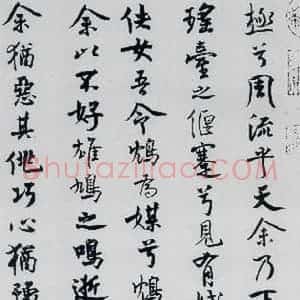 極兮周流乎天余乃下
瑤臺之偃蹇兮見有娀
佚女吾令鴆為媒兮鴆
余以不好雄鳩之鳴逝
余猶惡其佻巧心猶豫
Shufaziliao.com